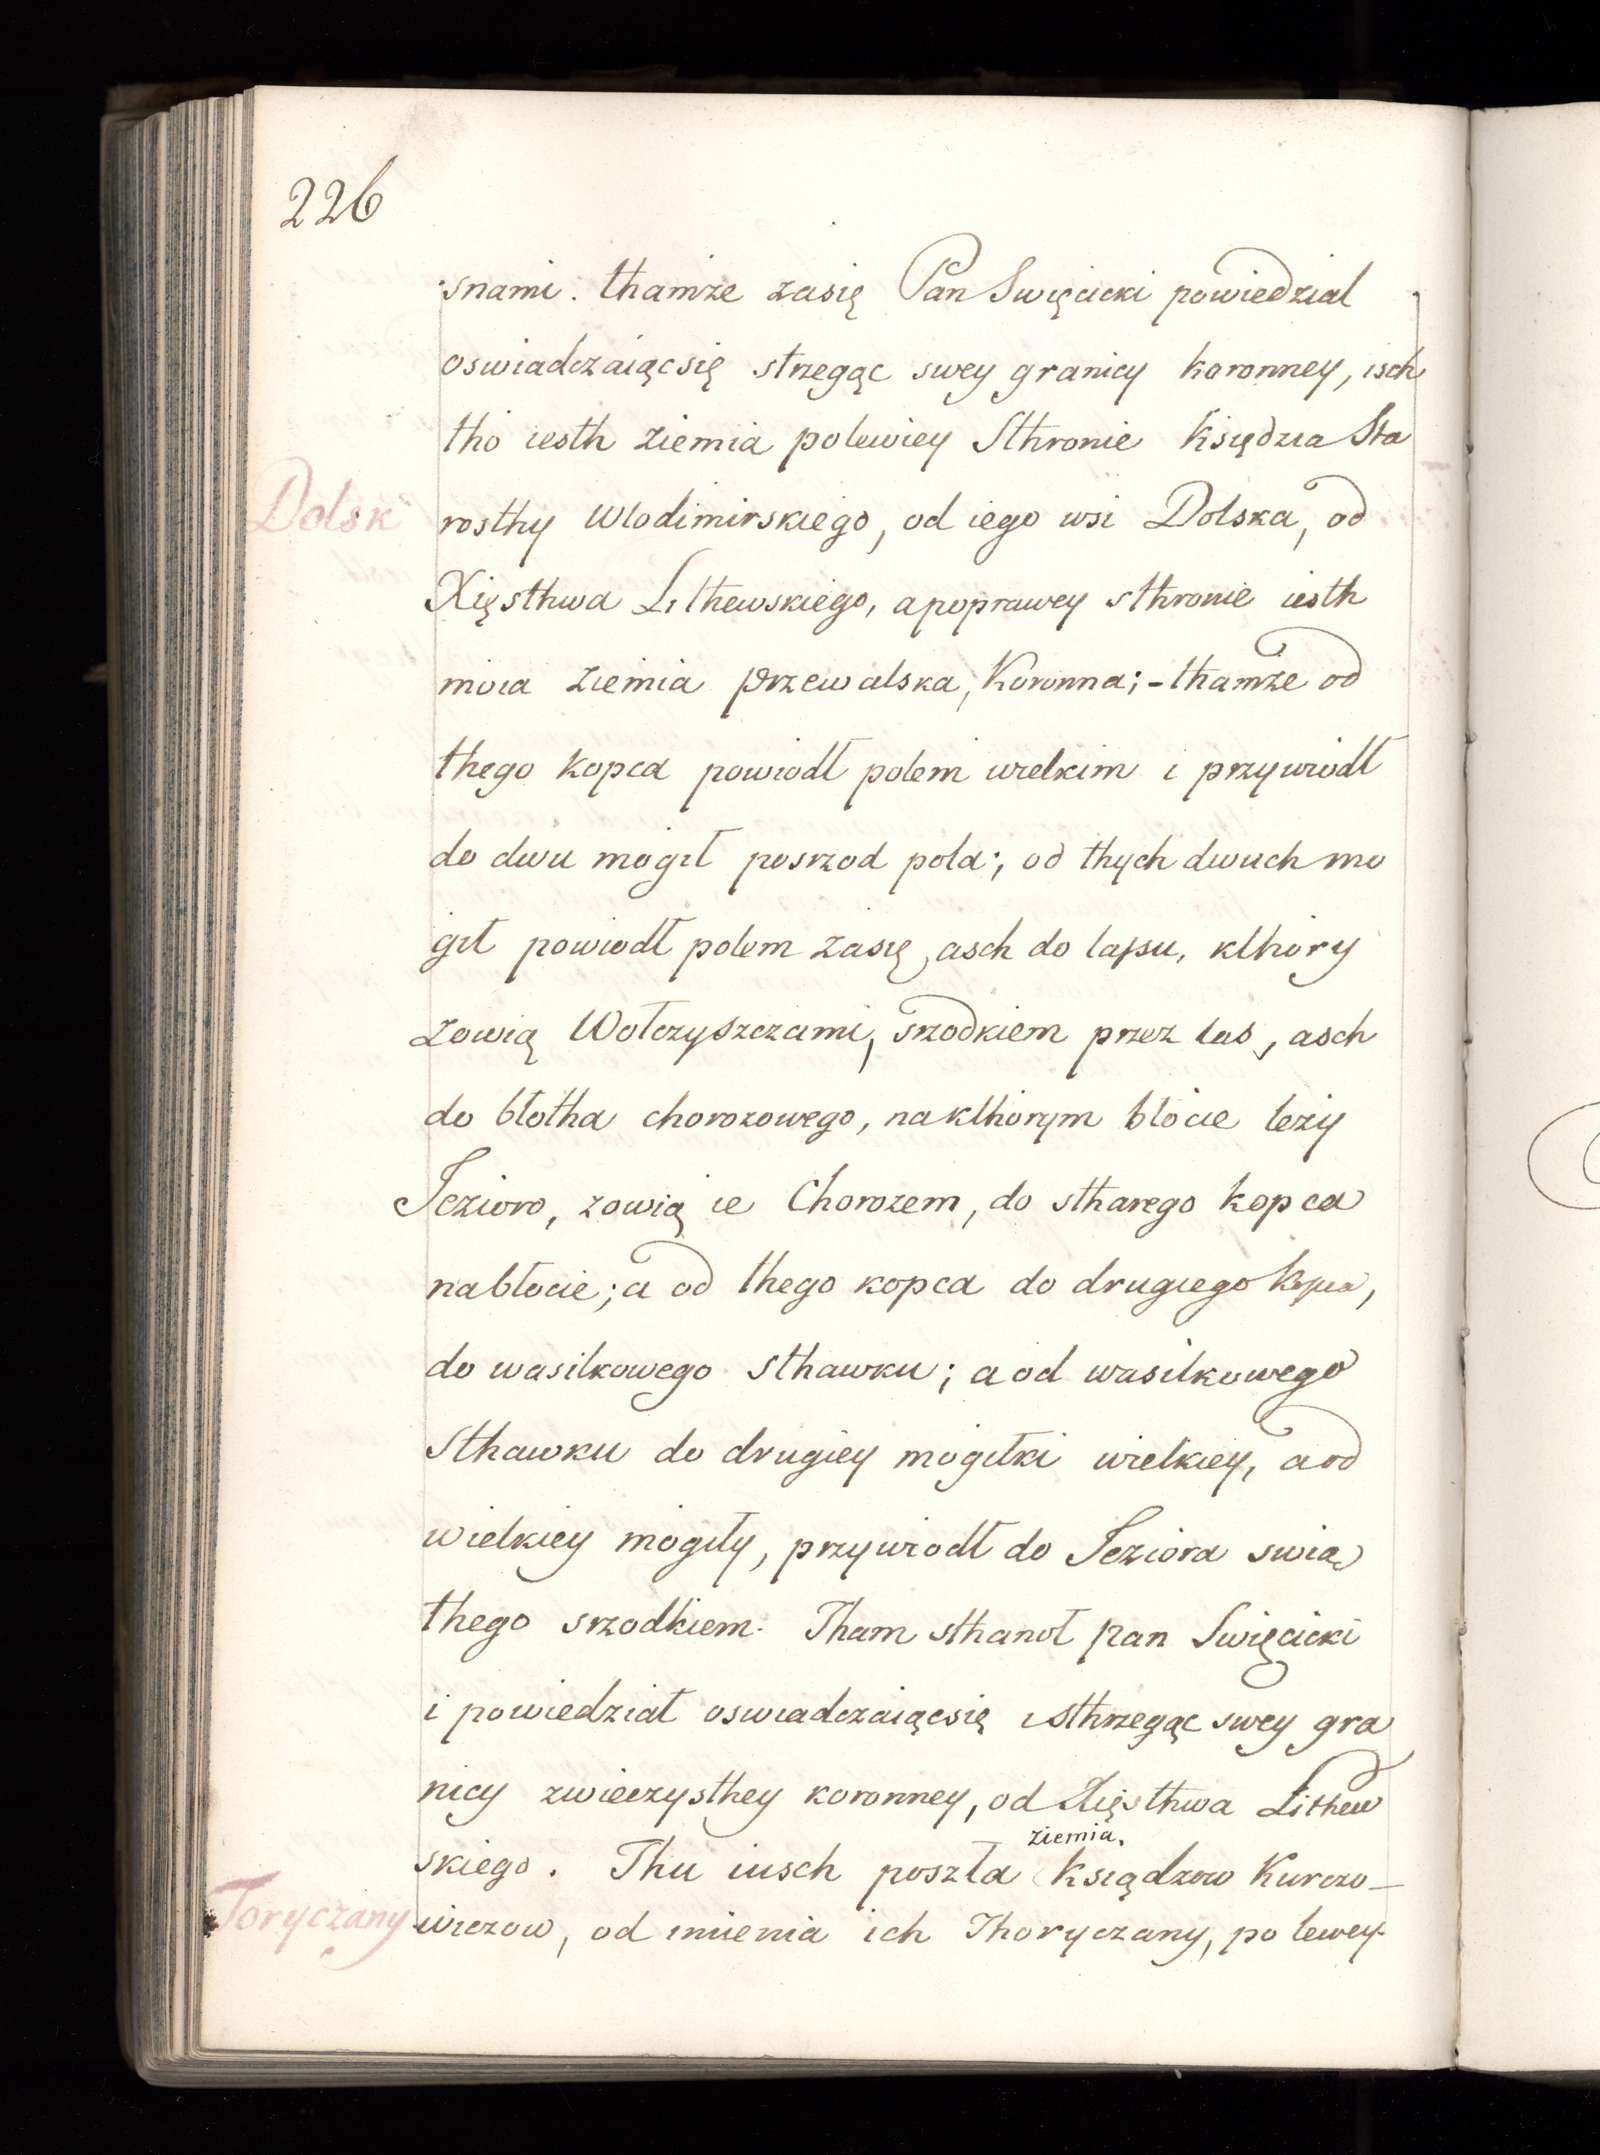 226
snami. thamże zasię Pan Swięcicki powiedział
oswiadczaiącsię strzegąc swey granicy koronney, isch
tho iesth ziemia polewiey Sthronie księdza Sta
Dolsk
rosthy Wlodimirskiego, od iego wsi Dolska, od
Xięsthwa Lithewskiego, apoprawey sthronie iesth
moia ziemia przewalska, Koronna; - thamże od
thego kopca powiodł polem wielkim i przywiodł
do dwu mogił posrzod pola; od thych dwuch mo
gił powiodł polem zasię, asch do lassu, kthory
zowią Wołczyszczami, srzodkiem przez las, asch
do błotha chorozowego, nakthorym błocie leży
Jezioro, zowią ie Chorozem, do stharego kopca
nabłocie; a od thego kopca do drugiego kopca,
do wasilkowego sthawku; a od wasilkowego
Sthawku do drugiey mogiłki wielkiey, a od
wielkiey mogiły, przywiodł do Jeziora swią
thego srzodkiem. Tham sthanoł pan Swięcicki
i powiedział oswiadczaiącsię isthrzegąc swey gra
nicy zwieczysthey koronney, od Xięsthwa Lithew
ziemia.
skiego. Thu iusch poszła ksiądzow Kurczo-
Toryczany
wiczow, od imienia ich Thoryczany, po lewey